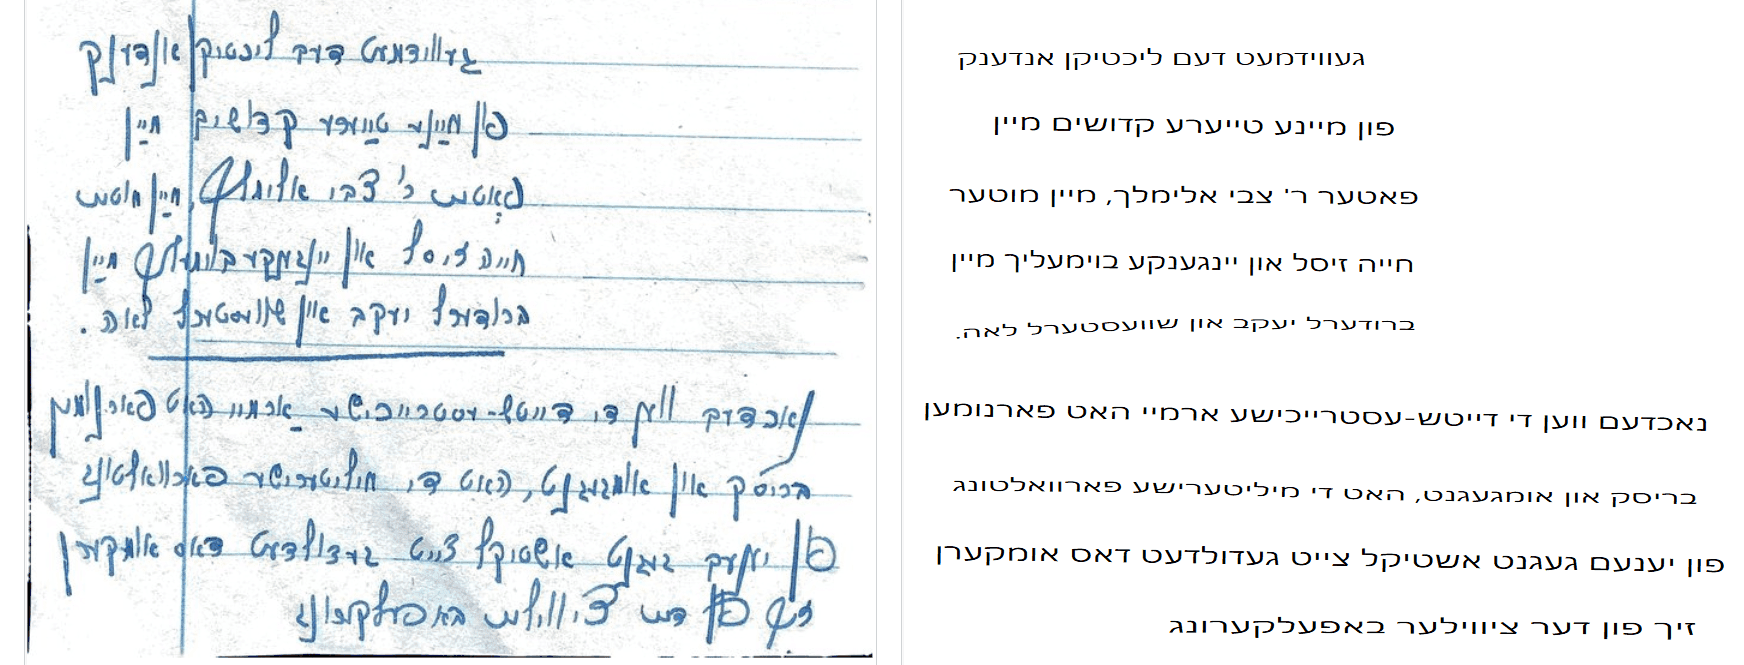 געווידמעט דעם ליכטיקן אנדענק
פון מײַנע טײַערע קדושים מײַן
פאָטער ר' צבי אלימלך, מײַן מוטער
חייה זיסל און יינגענקע בוימעליך מײַן
ברודערל יעקב און שוועסטערל לאה.
נאכדעם ווען די דייטש-עסטרייכישע אַרמיי האט פארנומען
בריסק און אומגעגנט, האט די מיליטערישע פארוואלטונג
פון יענעם געגנט אשטיקל צייט געדולדעט דאס אומקערן
זיך פון דער ציווילער באפעלקערונג
געווידמעט דעם ליכטיקן אנדענק
פון מיינע טייערע קדושים מיין
פאטער ר' צבי אלימלך, מיין מוטער
חייה זיסל און יינגענקע בוימעליך מיין
ברודערל יעקב און שוועסטערל לאה.
נאכדעם ווען די דייטש-עסטרייכישע ארמיי האט פארנומען
בריסק און אומגעגנט, האט די מיליטערישע פארוואלטונג
פון יענעם געגנט אשטיקל צייט געדולדעט דאס אומקערן
זיך פון דער ציווילער באפעלקערונג